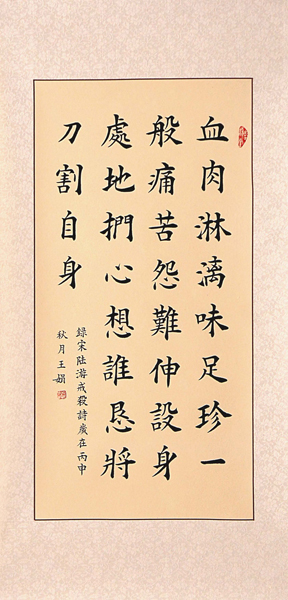 血肉淋漓味足珍一
般痛苦怨難伸設身
處地捫心想誰恳將
刀割自身
錄宋陆游戒殺詩歲在丙申
秋月王娟